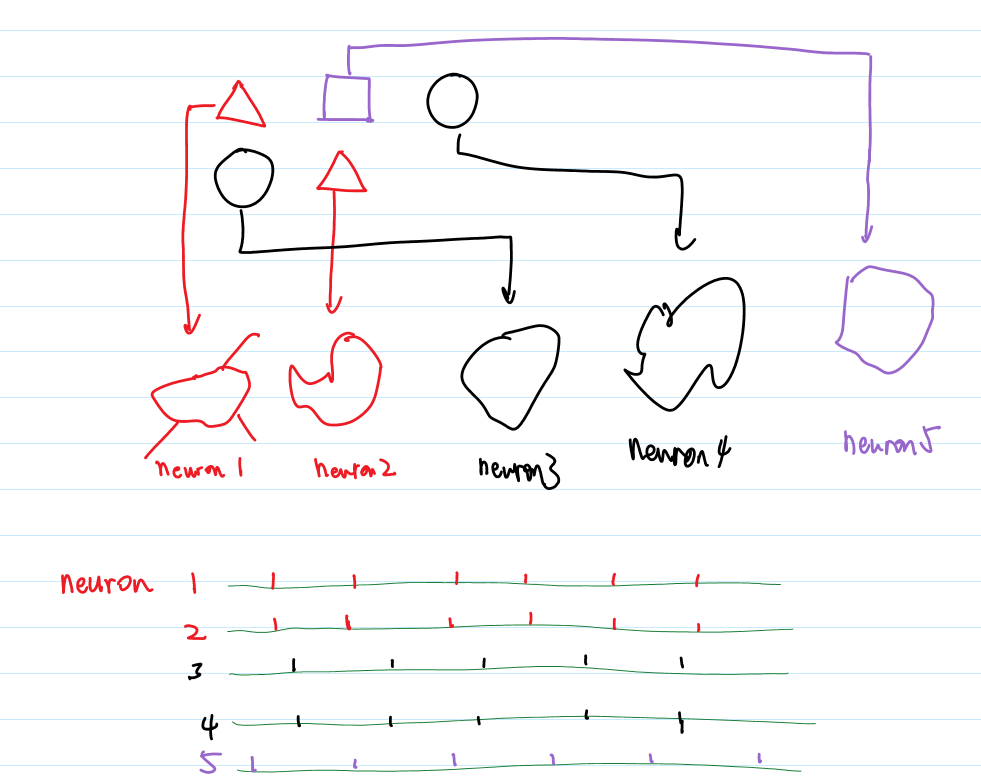 neuron 1 neuron 2 neuron 3 neuron 4 neuron 5
neuron 1
2
3
4
5